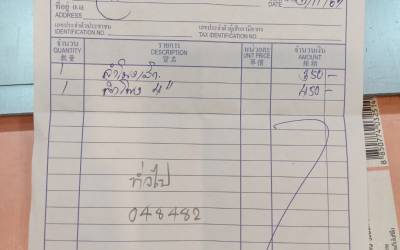 ที่อยู่
ADDRESS
DATE
เลขประจำตัวประชาชน
IDENTIFICATION NO.
เลขประจำตัวผู้เสียภาษีอากร
TAX IDENTIFICATION NO.
จำนวน รายการ หน่วยละ จำนวนเงิน
QUANTITY DESCRIPTION UNIT PRICE AMOUNT
數量 貨名 單價
1 350 -
1 ลำโพง 4" 450 -
ทั่วไป
048482